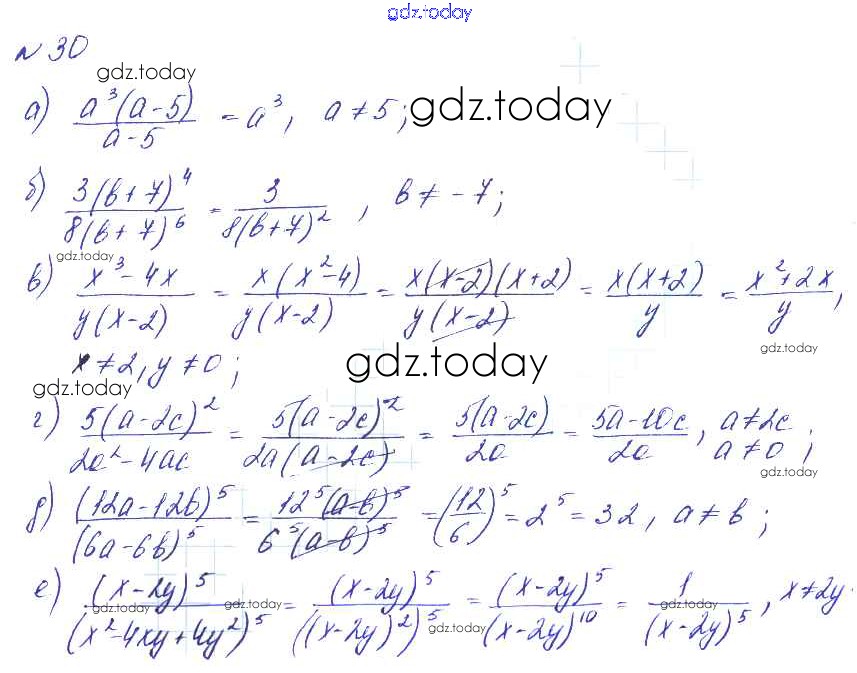 gdz.today
№ 30
gdz.today
а) a³(a-5)/(a-5) = a³, a ≠ 5; gdz.today
б) 3(b+7)⁴/8(b+7)⁶ = 3/8(b+7)², b ≠ -7;
gdz.today
в) (x³-4x)/(y(x-2)) = x(x²-4)/(y(x-2)) = x(x-2)(x+2)/(y(x-2)) = x(x+2)/y = (x²+2x)/y,
gdz.today
x ≠ 2, y ≠ 0; gdz.today
gdz.today
г) 5(a-2c)²/(2a²-4ac) = 5(a-2c)²/(2a(a-2c)) = 5(a-2c)/2a = (5a-10c)/2a, a ≠ 2c a ≠ 0;
gdz.today
д) (12a-12b)⁵/(6a-6b)⁵ = 12⁵(a-b)⁵/6⁵(a-b)⁵ = (12/6)⁵ = 2⁵ = 32, a ≠ b;
е) (x-2y)⁵/(x²-4xy+4y²)⁵ = (x-2y)⁵/((x-2y)²)⁵ = (x-2y)⁵/(x-2y)¹⁰ = 1/(x-2y)⁵, x ≠ 2y
gdz.today gdz.today gdz.today gdz.today
gdz.today